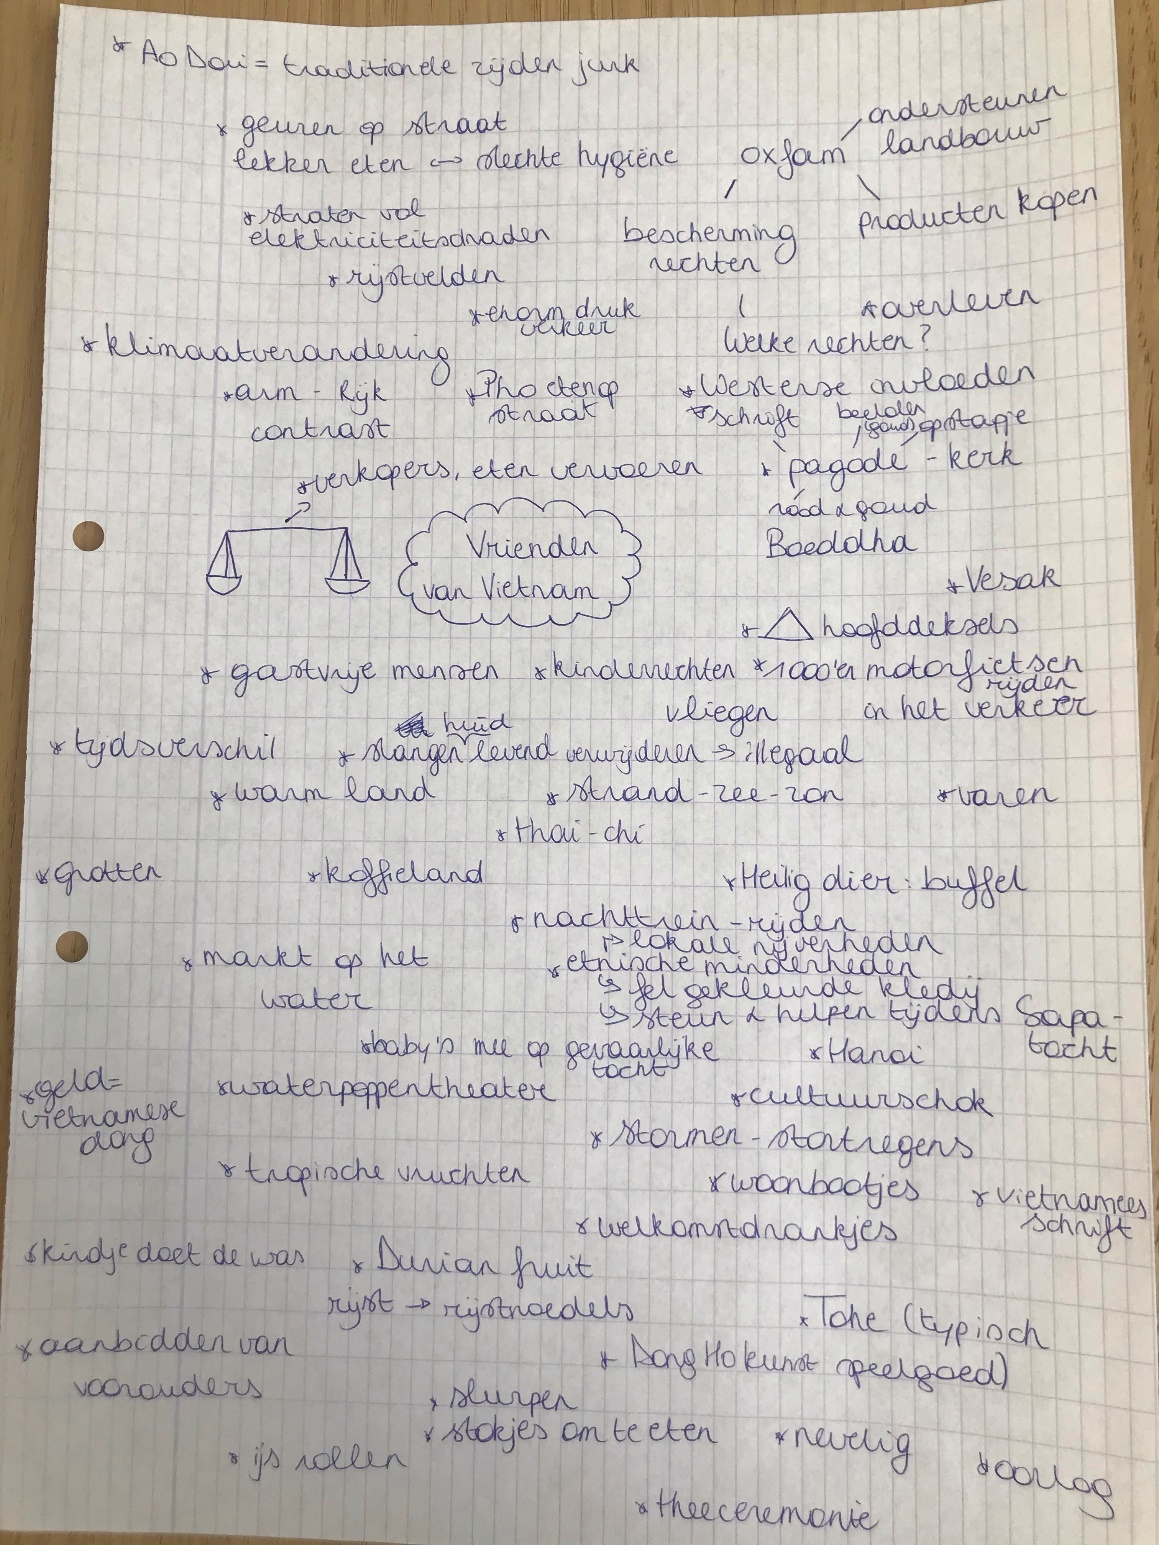 * Ao Dai = traditionele zijden jurk
* geuren op straat
lekker eten <-> slechte hygiëne
oxfam
ondersteunen
landbouw
producten kopen
* straten vol
elektriciteitsdraden
bescherming
rechten
* rijstvelden
* enorm druk
verkeer
* overleven
Welke rechten?
* klimaatverandering
* arm - Rijk
contrast
* Pho eten op
straat
* Westerse invloeden
* schrift
beelden
(goud) opstapje
* verkopers, eten vervoeren
* pagode - kerk
rood & goud
Boeddha
Vrienden
van Vietnam
* Vesak
* hoofddeksels
* gastvrije mensen
* kinderrechten
* 1000'en motorfietsen
rijden
in het verkeer
vliegen
* tijdsverschil
huid
* slangen levend verwijderen -> illegaal
* warm land
* strand-zee-zon
* varen
* thai-chi
* grotten
* koffieland
* Heilig dier: buffel
* nachttrein - rijden
-> lokale nijverheden
* markt op het
water
* etnische minderheden
-> fel gekleurde kledij
-> steun & helpen tijdens Sapa-
tocht
* baby's mee op gevaarlijke
tocht
* Hanoi
* geld =
vietnamese
dong
* waterpoppentheater
* cultuurschok
* stormen - stortregens
* tropische vruchten
* woonbootjes
* vietnamees
schrift
* welkomstdrankjes
* kindje doet de was
* Durian fruit
rijst -> rijstnoedels
* Tohe (typisch
speelgoed)
* aanbidden van
voorouders
* Dong Ho kunst
* slurpen
* stokjes om te eten
* nevelig
* ijs rollen
* oorlog
* theeceremonie